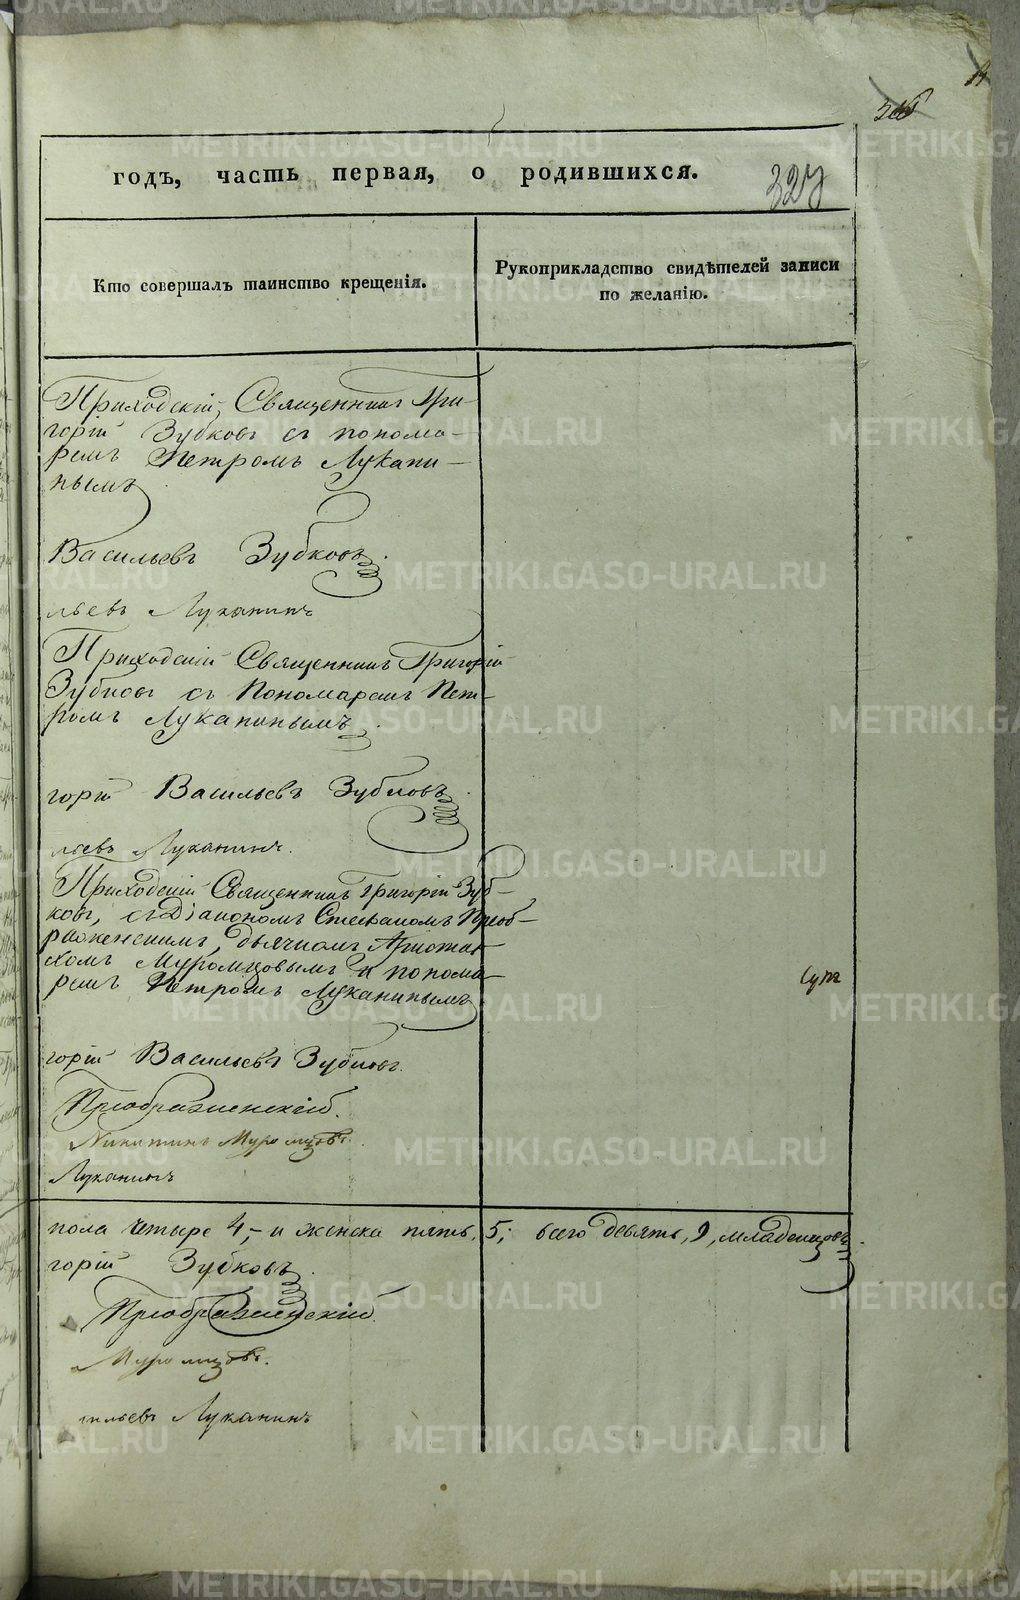 годъ, часть первая, о родившихся.
327
Кто совершалъ таинство крещенія.
Рукоприкладство свидѣтелей записи
по желанію.
Приходскій Священникъ Гри-
горій Зубковъ съ понома-
ремъ Петромъ Лукани-
нымъ
Васильевъ Зубковъ.
льевъ Луканинъ
Приходскій Священникъ Григорій
Зубковъ съ Пономаремъ Пет-
ромъ Луканинымъ.
горій Васильевъ Зубковъ.
льевъ Луканинъ.
Приходскій Священникъ Григорій Зуб-
ковъ, съ Діакономъ Стефаномъ Преоб-
раженскимъ, дьячкомъ Аристар-
хомъ Муромцовымъ и понома-
ремъ Петромъ Луканинымъ
горій Васильевъ Зубковъ.
Преображенскій.
Никитинъ Муромцовъ.
Луканинъ
пола четыре 4,- и женска пять, 5; всего девять, 9, младенцовъ.
горій Зубковъ.
Преображенскій.
Муромцовъ.
сильевъ Луканинъ
METRIKI.GASO-URAL.RU